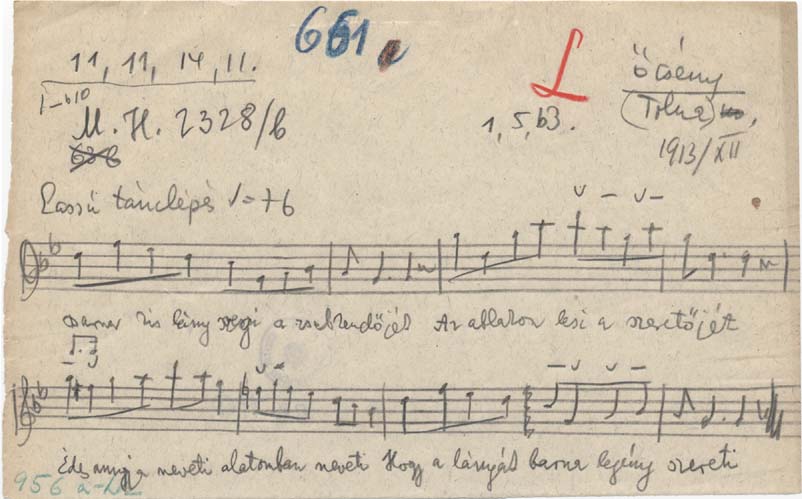 661
11, 11, 14, 11.
L
Őcsény
1-b10
(Tolna),
M. H. 2328/b
1, 5, b3.
1913/XII
63 b
Lassú tánclépés ♩=76
Barna kis lány szegi a zsebkendőjét Az ablakon lesi a szeretőjét
Édes anyja neveti alatomban neveti Hogy a lányát barna legény szereti
956